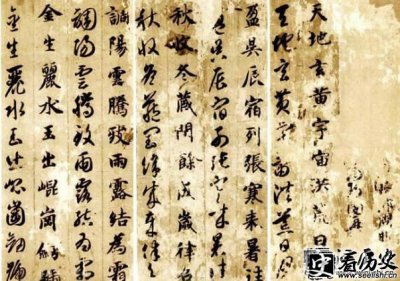 天地玄黄宇宙洪荒日
天地玄黄宇宙洪荒日
盈昃辰宿列張寒来暑往
盈昃辰宿列張寒来暑往
秋收冬藏閏餘成歲律
秋收冬藏閏餘成歲律
調陽雲騰致雨露結為霜
調陽雲騰致雨露結為霜
金生麗水玉出崐崗劔號
金生麗水玉出崐崗劔號
看历史
www.seelishi.com